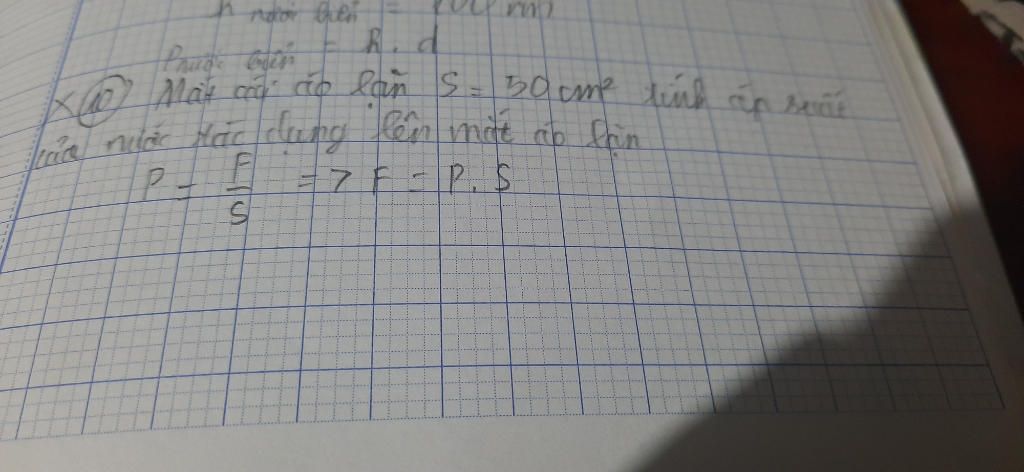 h nước biển =
P nước biển = h. d
x 10) Mặt áo lặn S = 50 cm² tính áp suất
của nước tác dụng lên mặt áo lặn
P = F/S => F = P. S